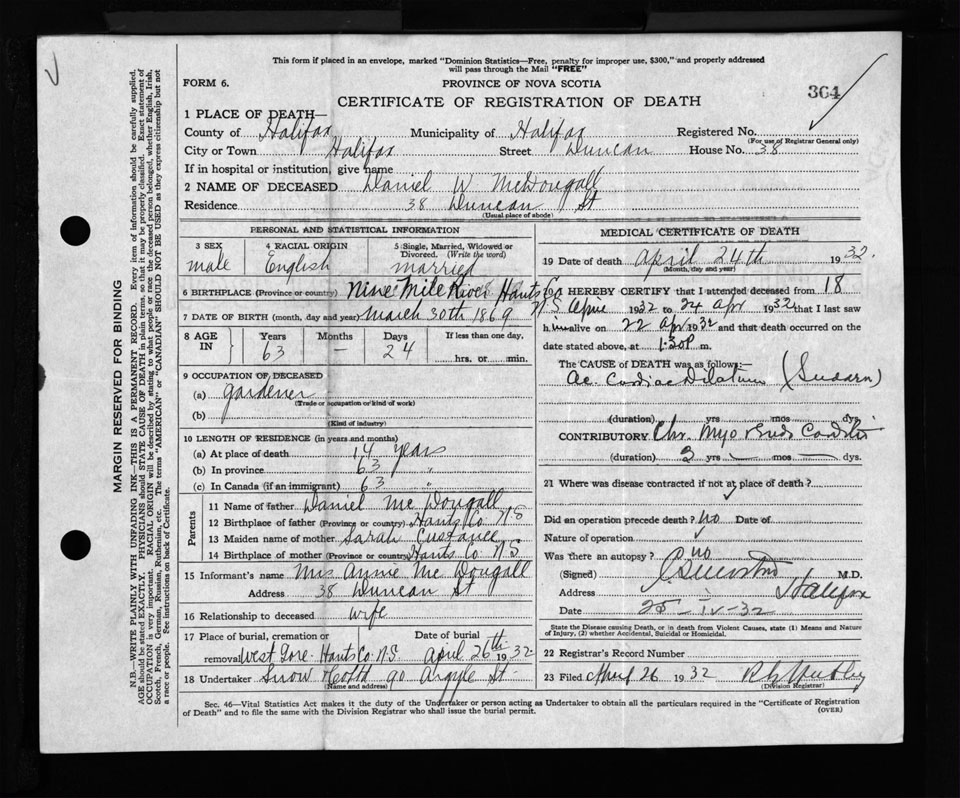 This form if placed in an envelope, marked "Dominion Statistics—Free, penalty for improper use, $300," and properly addressed
will pass through the Mail "FREE"
FORM 6.
PROVINCE OF NOVA SCOTIA
364
CERTIFICATE OF REGISTRATION OF DEATH
1 PLACE OF DEATH—
County of Halifax Municipality of Halifax Registered No.
(For use of Registrar General only)
City or Town Halifax Street Duncan House No. 38
If in hospital or institution, give name
2 NAME OF DECEASED Daniel W McDougall
Residence 38 Duncan St
(Usual place of abode)
PERSONAL AND STATISTICAL INFORMATION
3 SEX
male
4 RACIAL ORIGIN
English
5 Single, Married, Widowed or
Divorced. (Write the word)
married
6 BIRTHPLACE (Province or country) Nine Mile River Hants Co
N.S
7 DATE OF BIRTH (month, day and year) March 30th 1869
8 AGE
IN
Years Months Days If less than one day,
63 — 24 hrs. or min.
9 OCCUPATION OF DECEASED
(a) gardener
(Trade or occupation or kind of work)
(b)
(Kind of industry)
10 LENGTH OF RESIDENCE (in years and months)
(a) At place of death 14 years
(b) In province 63 "
(c) In Canada (if an immigrant) 63 "
Parents
11 Name of father Daniel Mc Dougall
12 Birthplace of father (Province or country) Hants Co NS
13 Maiden name of mother Sarah Custance
14 Birthplace of mother (Province or country) Hants Co. N.S.
15 Informant's name Mrs Annie Mc Dougall
Address 38 Duncan St
16 Relationship to deceased wife
17 Place of burial, cremation or Date of burial
removal West Gore Hants Co. N.S. April 26th 1932
18 Undertaker Snow 90 Argyle St
(Name and address)
MEDICAL CERTIFICATE OF DEATH
19 Date of death April 24th 1932.
(Month, day and year)
I HEREBY CERTIFY that I attended deceased from 18
April 1932 to 24 Apr 1932 that I last saw
him alive on 22 Apr 1932 and that death occurred on
date stated above, at 1.30 P m.
The CAUSE of DEATH was as follows:
Ac. Cardiac Dilatium (Sudden)
(duration) yrs mos dys.
CONTRIBUTORY Chr. Myo
(duration) 3 yrs — mos — dys.
21 Where was disease contracted if not at place of death?
Did an operation precede death? no Date of
Nature of operation
Was there an autopsy? no
(Signed) M.D.
Address Halifax
Date 25-IV-32
State the Disease causing Death, or in death from Violent Causes, state (1) Means and Nature
of Injury, (2) whether Accidental, Suicidal or Homicidal.
22 Registrar's Record Number
23 Filed 26 1932
(Division Registrar)
Sec. 46—Vital Statistics Act makes it the duty of the Undertaker or person acting as Undertaker to obtain all the particulars required in the "Certificate of Registration
of Death" and to file the same with the Division Registrar who shall issue the burial permit.
(OVER)
MARGIN RESERVED FOR BINDING
N.B.—WRITE PLAINLY WITH UNFADING INK—THIS IS A PERMANENT RECORD. Every item of information should be carefully supplied.
AGE should be stated EXACTLY. PHYSICIANS should STATE CAUSE OF DEATH in plain terms, so that it may be properly classified. Exact statement of
OCCUPATION is very important. RACIAL ORIGIN will be described by stating to what people or race the deceased person belonged, whether English, Irish,
Scotch, French, German, Russian, Ruthenian, etc. The terms "AMERICAN" or "CANADIAN" SHOULD NOT BE USED as they express citizenship but not
a race or people. See instructions on back of Certificate.